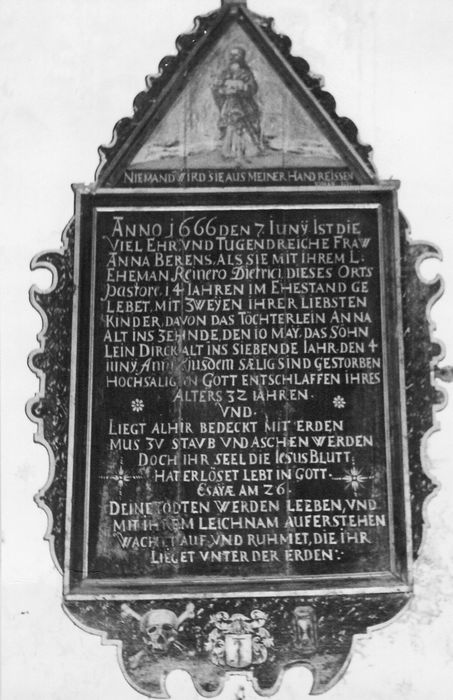 NIEMAND WIRD SIE AUS MEINER HAND REISSEN
IOHAN 10
ANNO 1666 DEN 7 IUNY IST DIE
VIEL EHR: VND TUGENDREICHE FRAW
ANNA BERENS, ALS SIE MIT IHREM L.
EHEMAN Reinero Dietrici, DIESES ORTS
pastore, 14 IAHREN IM EHESTAND GE
LEBET, MIT 3WEŸEN IHRER LIEBSTEN
KINDER, DAVON DAS TÖCHTERLEIN ANNA
ALT INS 3EHNDE, DEN 10 MAY, DAS SÖHN
LEIN DIRCK ALT INS SIEBENDE IAHR, DEN 4
IUNY, Anni Ejusdem SÆLIG SIND GESTORBEN
HOCHSALIG IN GOTT ENTSCHLAFFEN IHRES
ALTERS 32 IAHREN.
VND.
LIEGT ALHIR BEDECKT MIT ERDEN
MUS 3V STAVB VND ASCHEN WERDEN
DOCH IHR SEEL DIE IESUS BLUTT
HAT ERLÖSET LEBT IN GOTT.
ESAYÆ AM 26.
DEINE TODTEN WERDEN LEEBEN, VND
MIT IHREM LEICHNAM AUFERSTEHEN
WACHET AUF VND RUHMET, DIE IHR
LIEGET VNTER DER ERDEN: